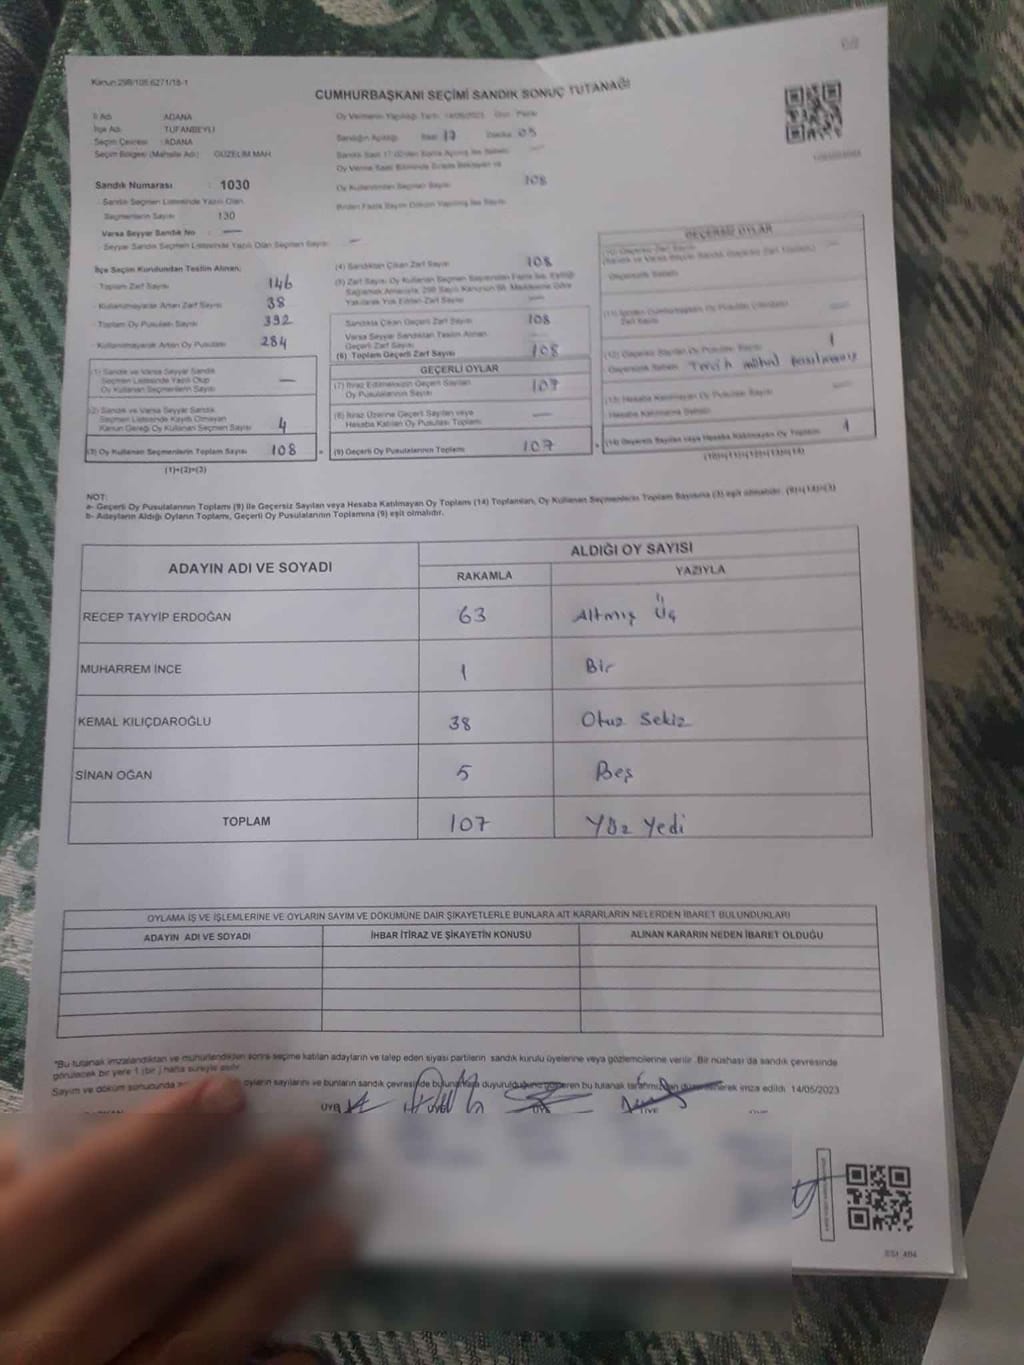 Kanun:298/105,6271/18-1
CUMHURBAŞKANI SEÇİMİ SANDIK SONUÇ TUTANAĞI
İl Adı ADANA
İlçe Adı TUFANBEYLİ
Seçim Çevresi : ADANA
Seçim Bölgesi (Mahalle Adı) GÜZELİM MAH.
Oy Vermenin Yapıldığı Tarih 14/05/2023 Gün Pazar
Sandığın Açıldığı Saat 17 Dakika 05
Oy Kullandırılan Seçmen Sayısı 108
Sandık Numarası : 1030
Sandık Seçmen Listesinde Yazılı Olan
Seçmenlerin Sayısı 130
Varsa Seyyar Sandık No : —
Seyyar Sandık Seçmen Listesinde Yazılı Olan Seçmen Sayısı —
İlçe Seçim Kurulundan Teslim Alınan;
Toplam Zarf Sayısı 146
Kullanılmayarak Artan Zarf Sayısı 38
Toplam Oy Pusulası Sayısı 392
Kullanılmayarak Artan Oy Pusulası 284
(1) Sandık ve Varsa Seyyar Sandık
Seçmen Listesinde Yazılı Olup
Oy Kullanan Seçmenlerin Sayısı —
(2) Sandık ve Varsa Seyyar Sandık
Seçmen Listesinde Kayıtlı Olmayan
Kanun Gereği Oy Kullanan Seçmen Sayısı 4
(3) Oy Kullanan Seçmenlerin Toplam Sayısı 108
(1)+(2)=(3)
(4) Sandıktan Çıkan Zarf Sayısı 108
(5) Zarf Sayısı Oy Kullanan Seçmen Sayısından Fazla İse, Eşitliği
Sağlamak Amacıyla, 298 Sayılı Kanunun 98. Maddesine Göre
Yakılarak Yok Edilen Zarf Sayısı —
Sandıkta Çıkan Geçerli Zarf Sayısı 108
Varsa Seyyar Sandıktan Teslim Alınan
Geçerli Zarf Sayısı
(6) Toplam Geçerli Zarf Sayısı 108
GEÇERLİ OYLAR
(7) İtiraz Edilmeksizin Geçerli Sayılan
Oy Pusulalarının Sayısı 107
(8) İtiraz Üzerine Geçerli Sayılan veya
Hesaba Katılan Oy Pusulası Toplamı —
(9) Geçerli Oy Pusulalarının Toplamı 107
GEÇERSİZ OYLAR
(12) Geçersiz Sayılan Oy Pusulası Sayısı 1
Tercih mührü basılmamış
(13) Hesaba Katılmayan Oy Pusulası Sayısı
Hesaba Katılmama Sebebi
(14) Geçersiz Sayılan veya Hesaba Katılmayan Oy Toplamı 1
(10)+(11)+(12)+(13)=(14)
NOT:
a- Geçerli Oy Pusulalarının Toplamı (9) ile Geçersiz Sayılan veya Hesaba Katılmayan Oy Toplamı (14) Toplamları, Oy Kullanan Seçmenlerin Toplam Sayısına (3) eşit olmalıdır. (9)+(14)=(3)
b- Adayların Aldığı Oyların Toplamı, Geçerli Oy Pusulalarının Toplamına (9) eşit olmalıdır.
ADAYIN ADI VE SOYADI ALDIĞI OY SAYISI
RAKAMLA YAZIYLA
RECEP TAYYİP ERDOĞAN 63 Altmış Üç
MUHARREM İNCE 1 Bir
KEMAL KILIÇDAROĞLU 38 Otuz Sekiz
SİNAN OĞAN 5 Beş
TOPLAM 107 Yüz Yedi
OYLAMA İŞ VE İŞLEMLERİNE VE OYLARIN SAYIM VE DÖKÜMÜNE DAİR ŞİKAYETLERLE BUNLARA AİT KARARLARIN NELERDEN İBARET BULUNDUKLARI
ADAYIN ADI VE SOYADI İHBAR İTİRAZ VE ŞİKAYETİN KONUSU ALINAN KARARIN NEDEN İBARET OLDUĞU
*Bu tutanak imzalandıktan ve mühürlendikten sonra seçime katılan adayların ve talep eden siyasi partilerin sandık kurulu üyelerine veya gözlemcilerine verilir. Bir nüshası da sandık çevresinde
görülecek bir yere 1 (bir) hafta süreyle asılır.
Sayım ve döküm sonucunda oyların sayılarını ve bunların sandık çevresinde duyurulduğunu gösteren bu tutanak tarafımızdan düzenlenerek imza edildi. 14/05/2023
ÜYE
SSI_464